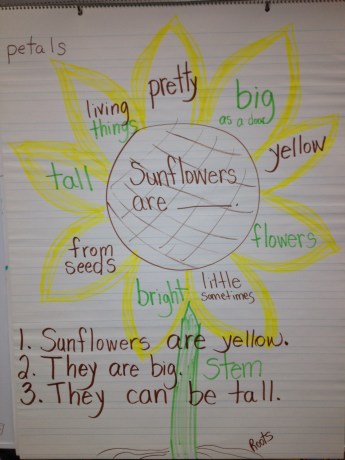 petals
pretty
living
things
big
as a door
yellow
tall
Sunflowers
are ____.
flowers
from
seeds
bright
little
sometimes
1. Sunflowers are yellow.
2. They are big.
Stem
3. They can be tall.
Roots